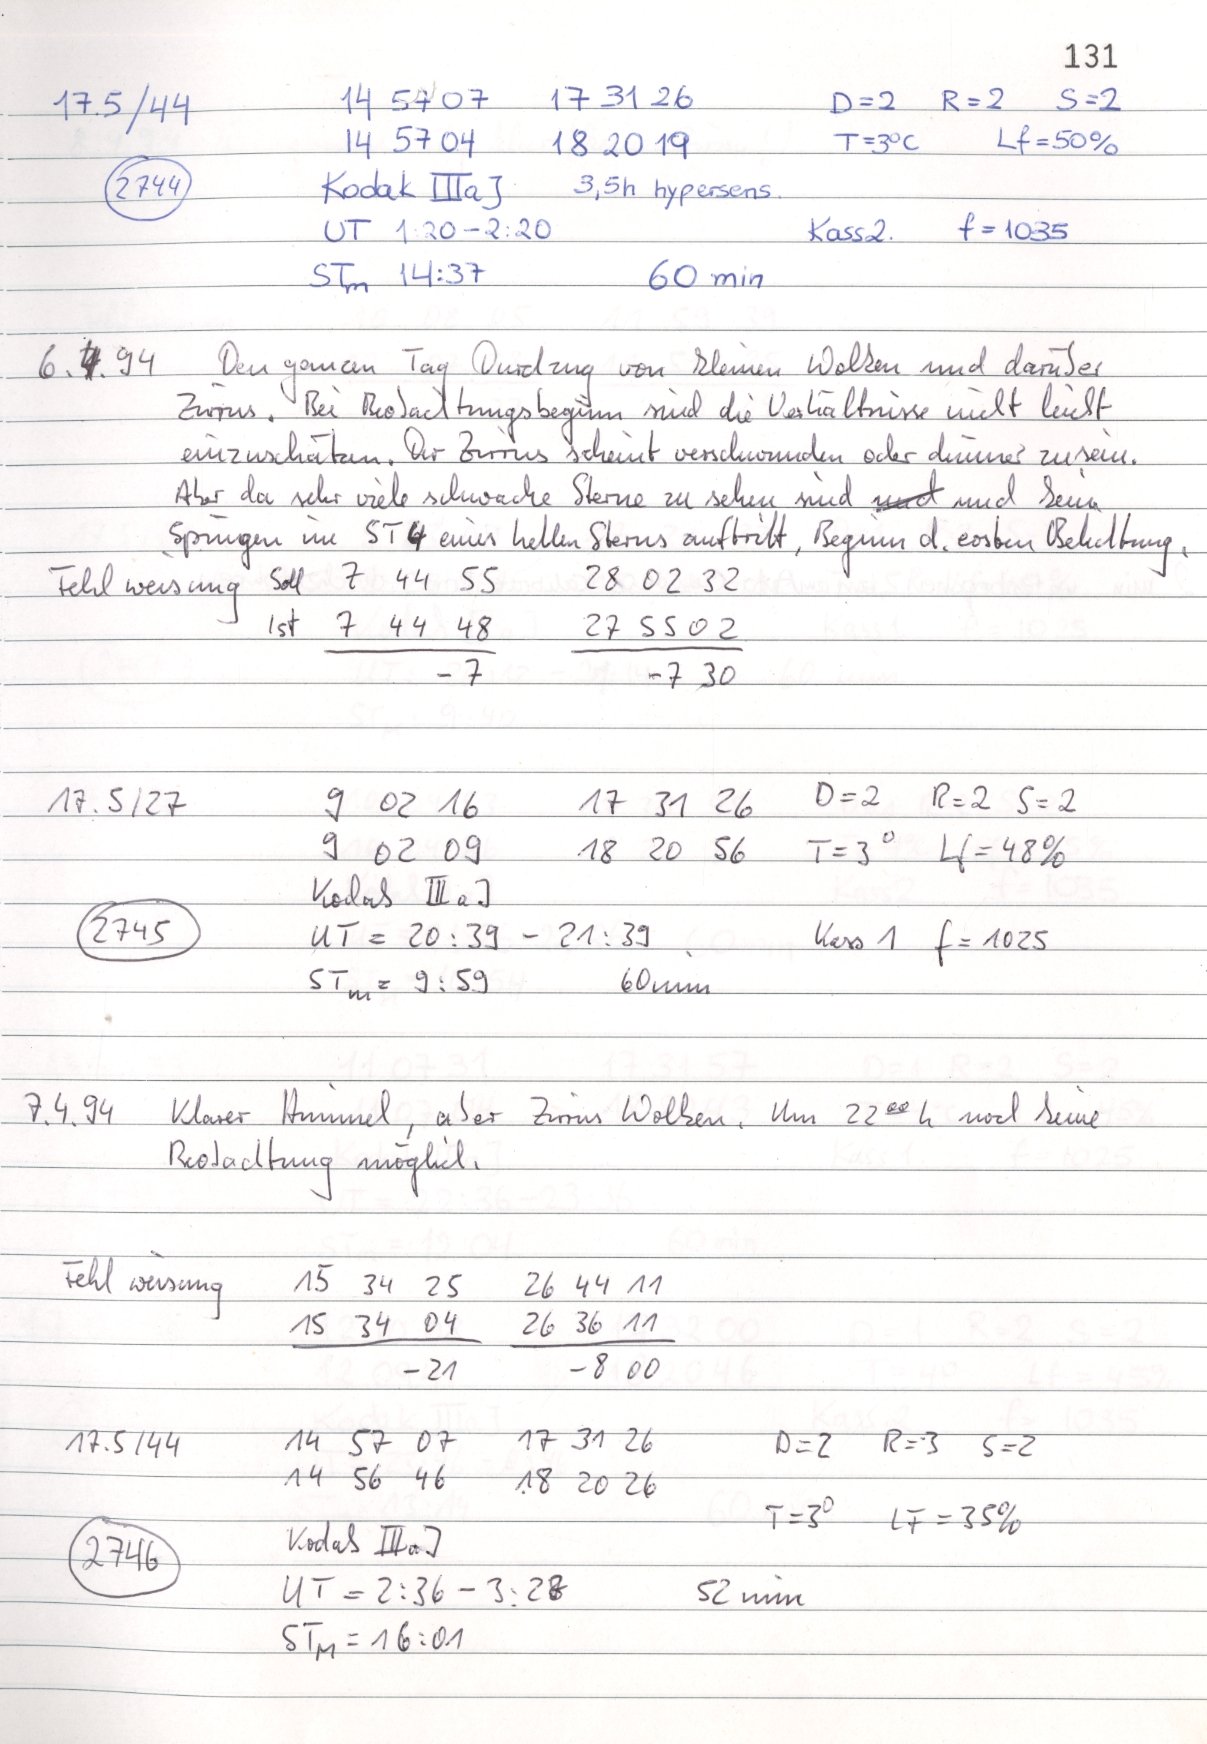 131
17.5/44 14 57 07 17 31 26 D=2 R=2 S=2
14 57 04 18 20 19 T=3°C Lf=50%
2744 Kodak IIIaJ 3,5h hypersens.
UT 1:20-2:20 Kass 2. f=1035
STm 14:37 60 min
6.4.94 Den ganzen Tag Durchzug von kleinen Wolken und darüber
Zirrus. Bei Beobachtungsbeginn sind die Verhältnisse nicht leicht
einzuschätzen. Der Zirrus scheint verschwunden oder dünner zu sein.
Aber da sehr viele schwache Sterne zu sehen sind und kein
Springen im ST4 eines hellen Sterns auftritt, Beginn d. ersten Belichtung.
Fehlweisung Soll 7 44 55 28 02 32
Ist 7 44 48 27 55 02
-7 -7 30
17.5/27 9 02 16 17 31 26 D=2 R=2 S=2
9 02 09 18 20 56 T=3° Lf=48%
Kodak IIIaJ
2745 UT = 20:39 - 21:39 Kass 1 f=1025
STm = 9:59 60min
7.4.94 Klarer Himmel, aber Zirrus Wolken. Um 22⁰⁰h noch keine
Beobachtung möglich.
Fehlweisung 15 34 25 26 44 11
15 34 04 26 36 11
-21 -8 00
17.5/44 14 57 07 17 31 26 D=2 R=3 S=2
14 56 46 18 20 26
T=3° LF=35%
2746 Kodak IIIaJ
UT = 2:36 - 3:28 52 min
STM = 16:01